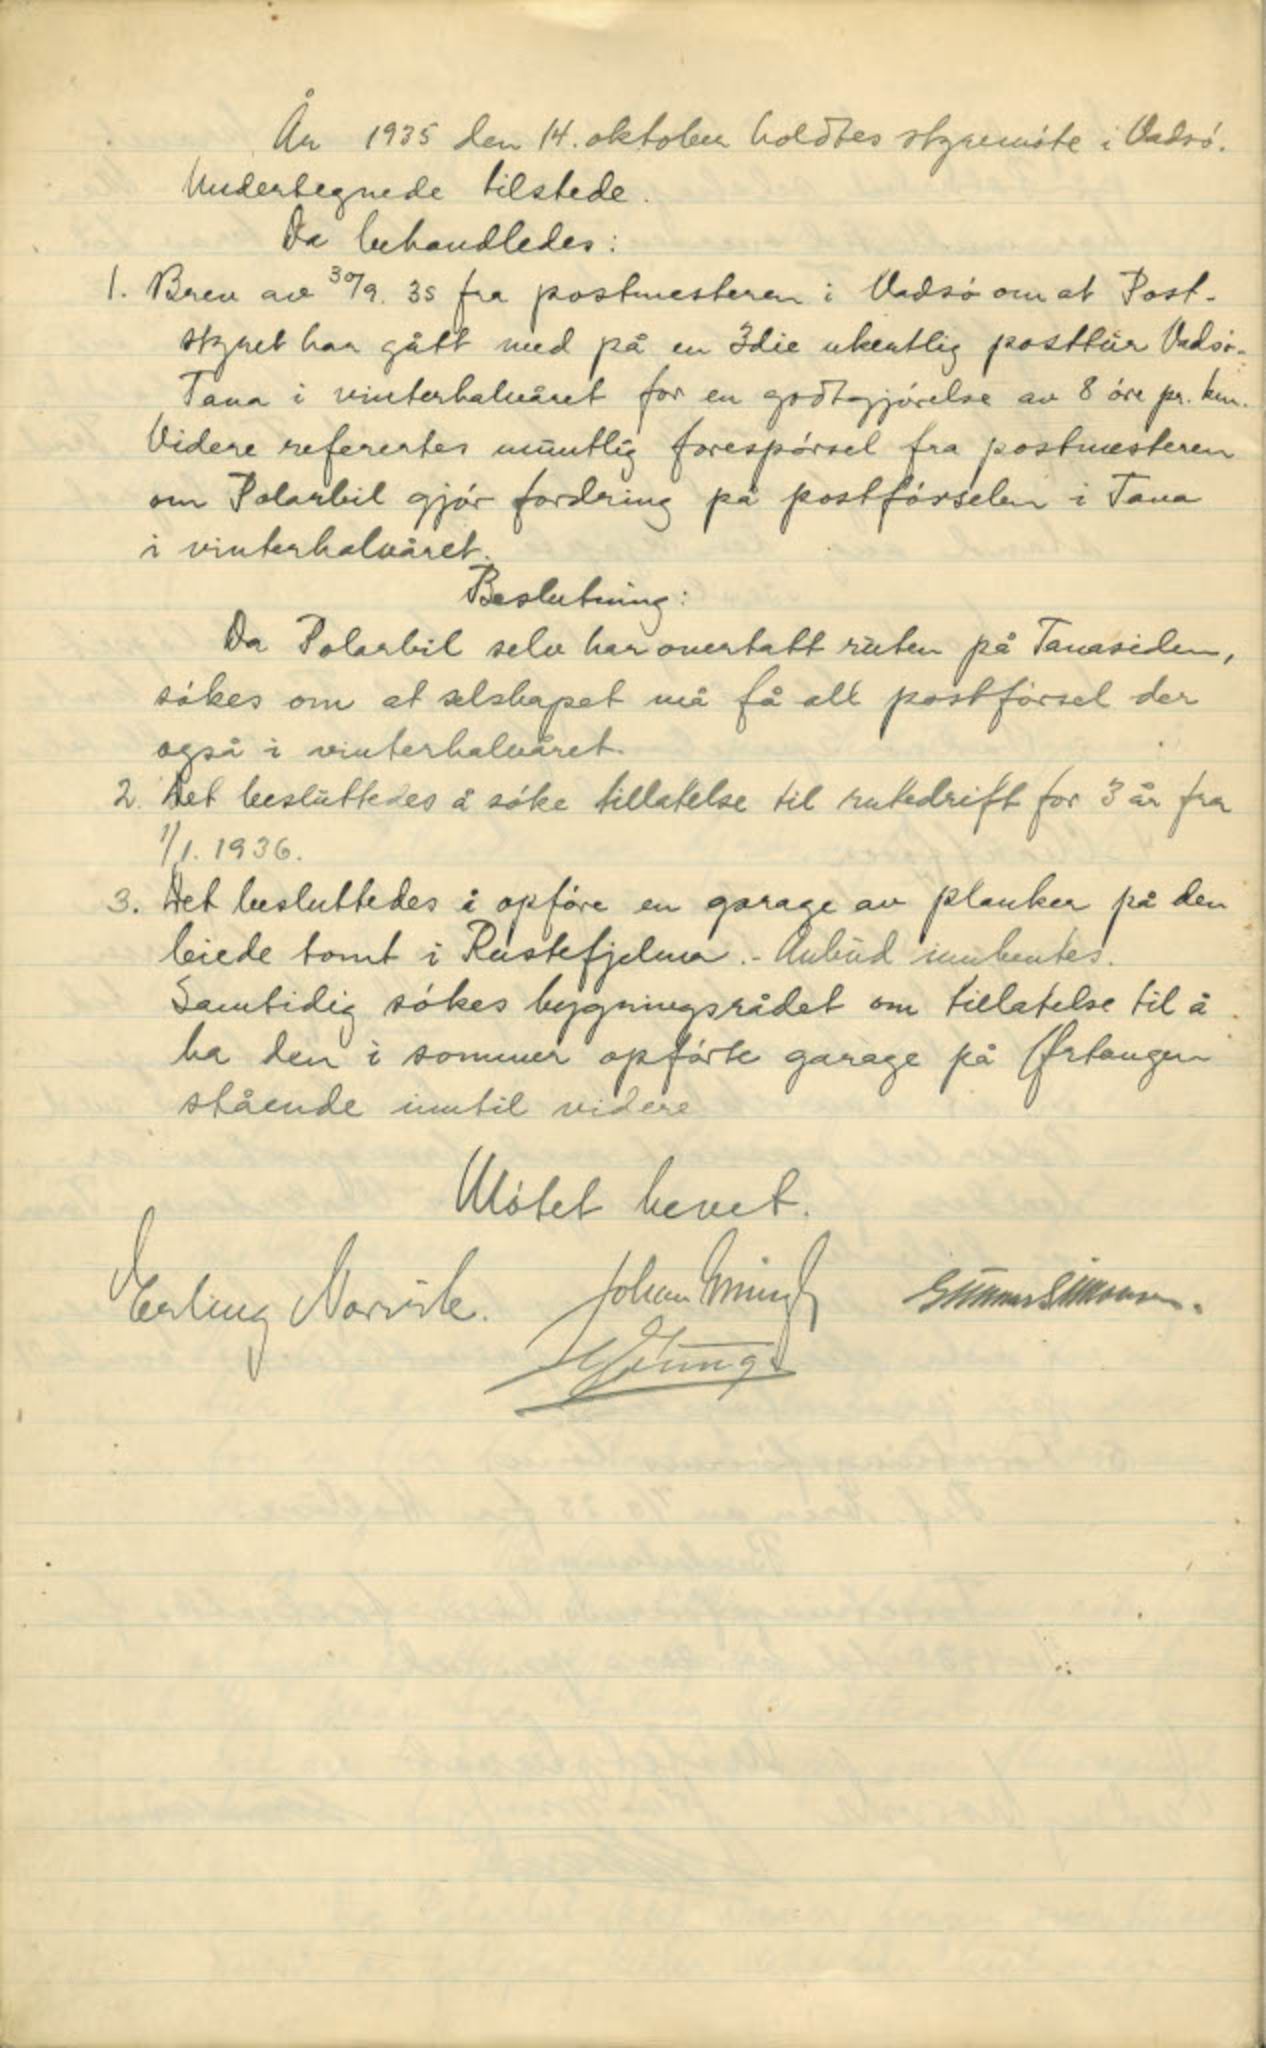 År 1935 den 14. oktober holdtes styremöte i Vadsö.
Undertegnede tilstede.
Da behandledes:
1. Brev av 30/9. 35 fra postmesteren i Vadsö om at Post-
styret har gått med på en 3die ukentlig posttur Vadsö-
Tana i vinterhalvåret for en godtgjörelse av 8 öre pr. km.
Videre referertes muntlig forespörsel fra postmesteren
om Polarbil gjör fordring på postförselen i Tana
i vinterhalvåret.
Beslutning:
Da Polarbil selv har overtatt ruten på Tanasiden,
sökes om at selskapet må få all postförsel der
også i vinterhalvåret.
2. Det besluttedes å söke tillatelse til rutedrift for 3 år fra
1/1. 1936.
3. Det besluttedes å opföre en garage av planker på den
leiede tomt i Rustefjelma. - Anbud innhentes.
Samtidig sökes bygningsrådet om tillatelse til å
ha den i sommer opförte garage på Örtangen
stående inntil videre
Mötet hevet.
Erling Norvik. Johan Gunnar Simonsen.